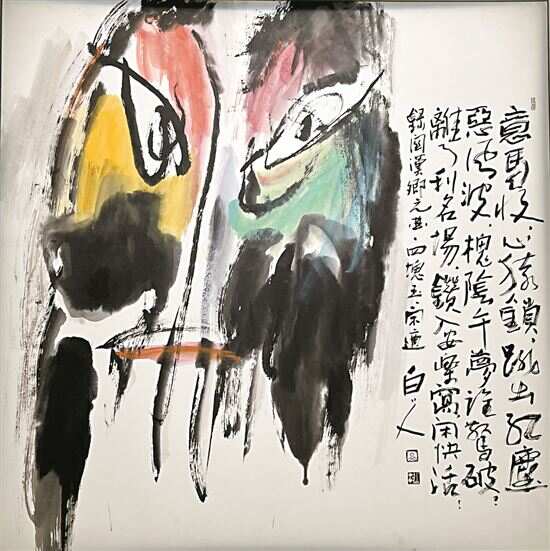 意馬收，心猿鎖，跳出紅塵
惡風波，槐陰午夢誰驚破？
離了利名場，鑽入安樂窩閑快活！
錄關漢卿元曲·四塊玉·閑適